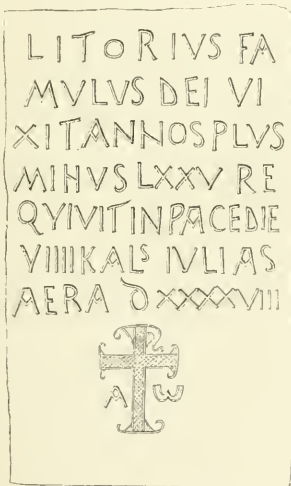 LITORIVS FA
MVLVS DEI VI
XIT ANNOS PLVS
MIHVS LXXV RE
QVIVIT IN PACE DIE
VIIII KALS IVLIAS
AERA D XXXXVIII
A ω